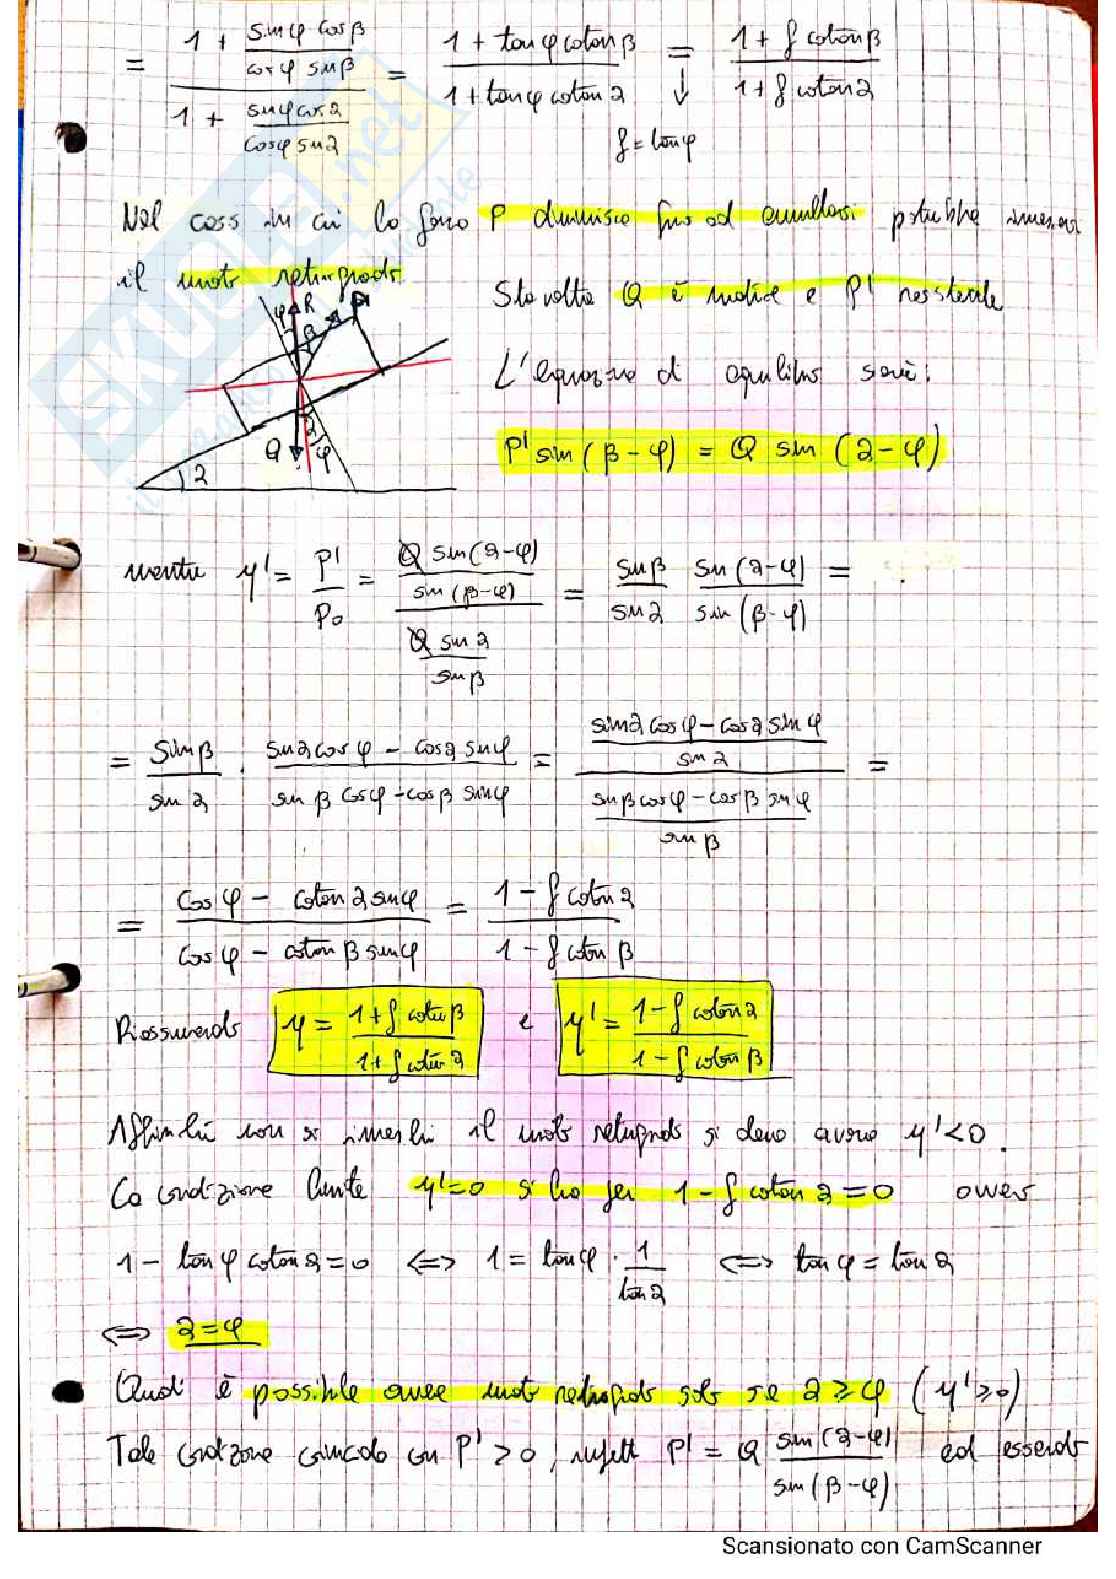 = \frac{1 + \frac{sin φ cos β}{cos φ sin β}}{1 + \frac{sin φ cos α}{cos φ sin α}} = \frac{1 + tan φ cotan β}{1 + tan φ cotan α} = \frac{1 + f cotan β}{1 + f cotan α}
↓
f = tan φ
Nel caso in cui la forza P diminuisce fino ad annullarsi potrebbe innescarsi
il moto retrogrado.
Stavolta Q è motrice e P' resistente
φ R P' β
L'equazione di equilibrio sarà:
Q α φ
P' sin (β - φ) = Q sin (α - φ)
α
mentre η' = \frac{P'}{P_0} = \frac{\frac{Q sin(α-φ)}{sin (β-φ)}}{\frac{Q sin α}{sin β}} = \frac{sin β}{sin α} \frac{sin (α-φ)}{sin (β-φ)} =
= \frac{sin β}{sin α} · \frac{sin α cos φ - cos α sin φ}{sin β cos φ - cos β sin φ} = \frac{\frac{sin α cos φ - cos α sin φ}{sin α}}{\frac{sin β cos φ - cos β sin φ}{sin β}} =
= \frac{cos φ - cotan α sin φ}{cos φ - cotan β sin φ} = \frac{1 - f cotan α}{1 - f cotan β}
Riassumendo η = \frac{1 + f cotan β}{1 + f cotan α} e η' = \frac{1 - f cotan α}{1 - f cotan β}
Affinché non si inneschi il moto retrogrado si deve avere η' < 0.
La condizione limite η' = 0 si ha per 1 - f cotan α = 0 ovvero
1 - tan φ cotan α = 0 ⟺ 1 = tan φ · \frac{1}{tan α} ⟺ tan φ = tan α
⟺ α = φ
Quindi è possibile avere moto retrogrado solo se α ≥ φ (η' ≥ 0)
Tale condizione coincide con P' > 0, infatti P' = Q \frac{sin (α-φ)}{sin (β-φ)} ed essendo
SKUOLA.net
Scansionato con CamScanner